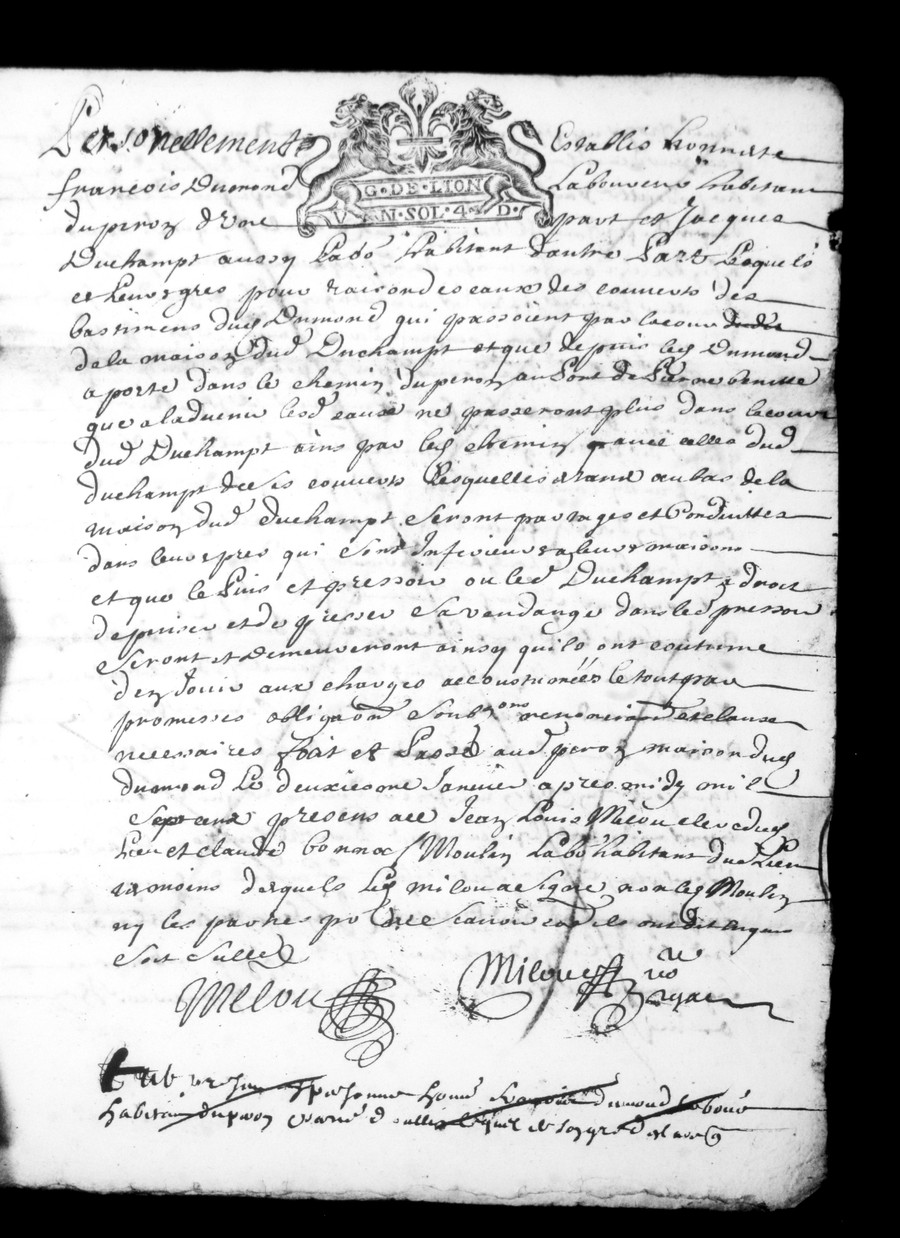 Personellement Establis honneste
françois Dumond Laboureur habitant
du peron d'Une part et Jacques
G·DE·LION
V N·SOL·4 D·
Duchampt aussy Labo^r habitant dautre Part Lesquels
et Leurs gres pour raison des eaux des couverts des
bastimens dud Dumond qui passoient par la cour
de la maison dud Duchampt et que depuis led Dumond
a porté dans le chemin du peron au Pont de
que a ladvenir lesd eaux ne passeront plus dans la cour
dud Duchampt ains par led chemin celles dud
duchampt de ses couverts Lesquelles au bas de la
maison dud Duchampt seront partages et Conduittes
dans leurs pres qui sont Inferieurs a leurs maisons
et que le Puis et pressoir ou led Duchampt a droit
de puiser et de presser sa vendange dans led pressoir
seront et demeureront ainsy quils ont coutume
den Jouir aux charges accoustumées le tout par
promesses obliga^on soub^ons renonciaon et clause
necessaires fait et Passé aud peron maison dud
dumond Le deuxiesme Janvier apres midy mil
sept cent presens Jean Louis Milou clerc dud
Lieu et claude bonnot Moulin Labo^r habitant dud Lieu
tesmoins desquels Led milou a signe non led Moulin
ny les parties po^r ne scavoir ont dit enquis
Soit Sullé
Milou Milou
no^re
royal
personne françois dumond laboure
habitan du peron led